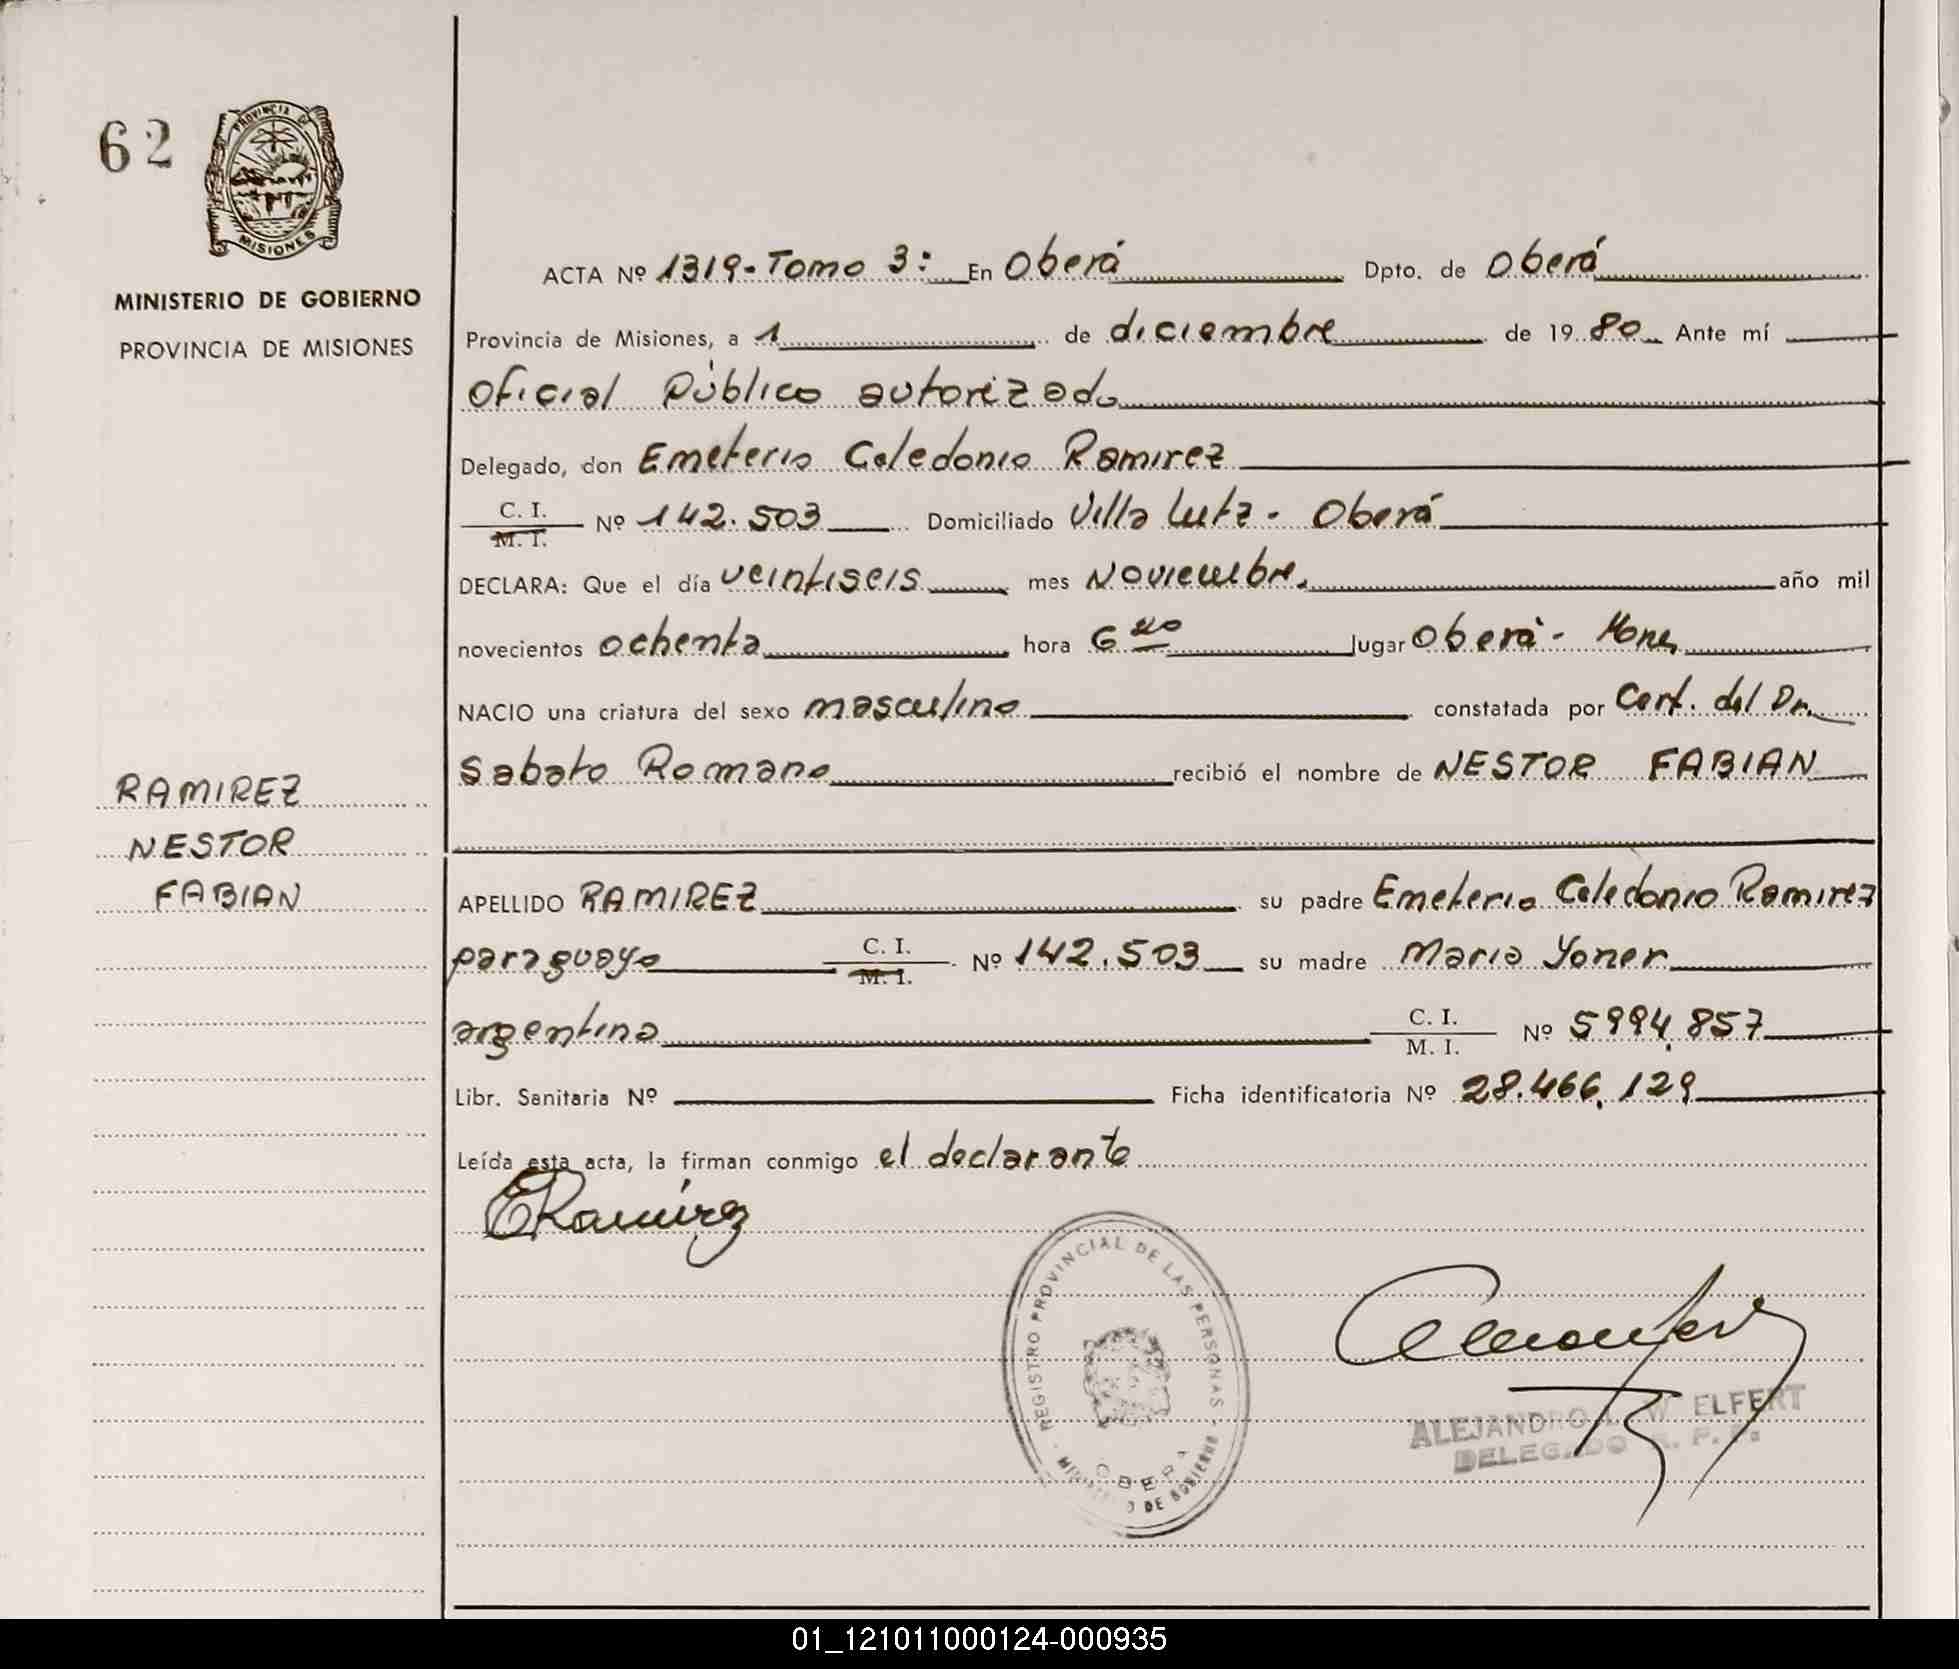 62
PROVINCIA DE
MISIONES
MINISTERIO DE GOBIERNO
PROVINCIA DE MISIONES
ACTA Nº 1319-Tomo 3: En Oberá Dpto. de Oberá
Provincia de Misiones, a 1 de diciembre de 1980 Ante mí
Oficial Público autorizado
Delegado, don Emeterio Celedonio Ramirez
C. I.
M. I. Nº 142.503 Domiciliado Villa Lutz - Oberá
DECLARA: Que el día veintiseis mes Noviembre. año mil
novecientos ochenta hora 6 lugar Oberá - Mones
NACIO una criatura del sexo masculino constatada por Cert. del Dr.
Sabato Romano recibió el nombre de NESTOR FABIAN
RAMIREZ
NESTOR
FABIAN
APELLIDO RAMIREZ su padre Emeterio Celedonio Ramirez
paraguayo C. I.
M. I. Nº 142.503 su madre Maria Yoner
argentina C. I.
M. I. Nº 5994.857
Libr. Sanitaria Nº Ficha identificatoria Nº 28.466.129
Leída esta acta, la firman conmigo el declarante
ERamírez
REGISTRO PROVINCIAL DE LAS PERSONAS
OBERA
MINISTERIO DE GOBIERNO
ALEJANDRO L. W. ELFERT
DELEGADO R. P. P.
01_121011000124-000935